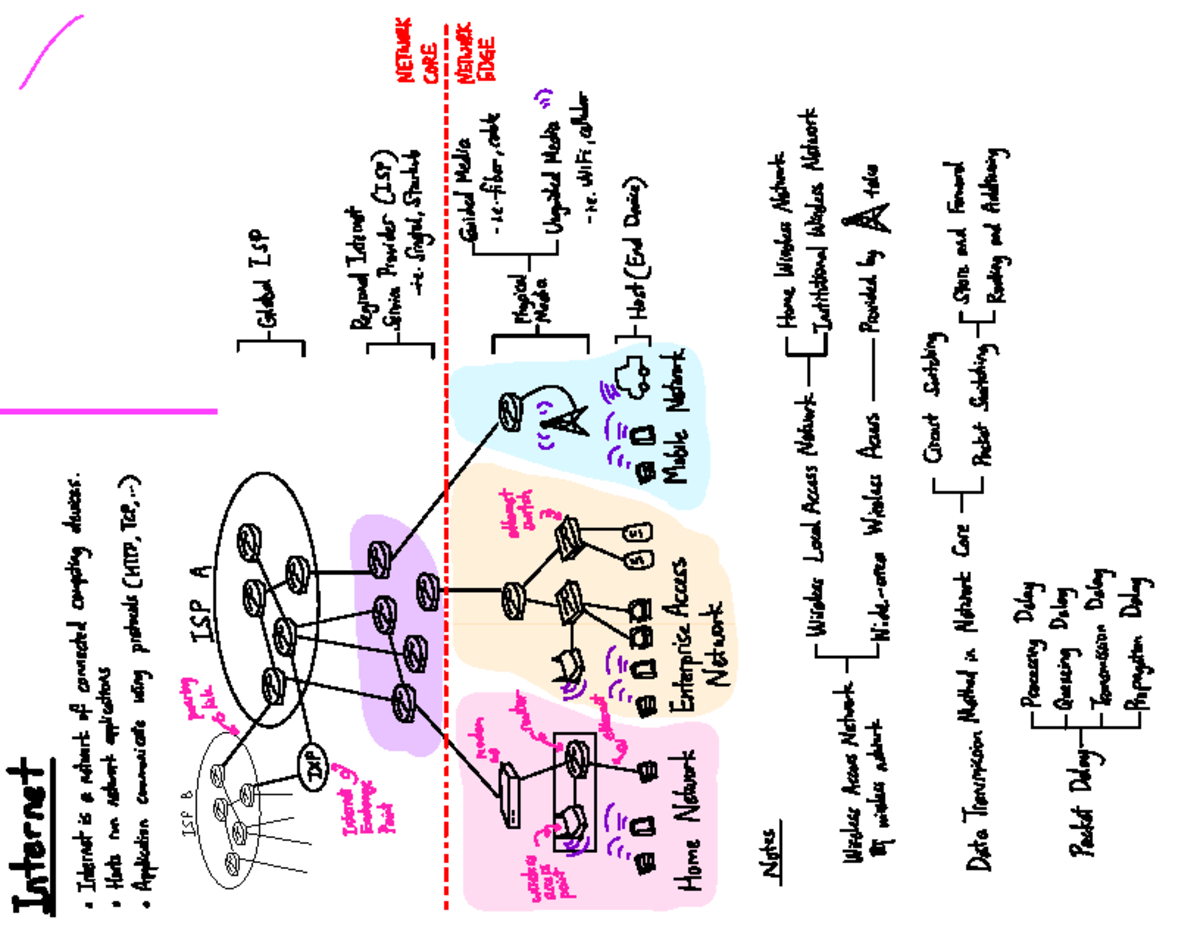 Internet
• Internet is a network of connected computing devices.
• Hosts run network applications
• Application communicate using protocols (HTTP, TCP, ...)
ISP B
peering
link
ISP A
Global ISP
IXP
Internet
Exchange
Point
Regional Internet
Service Provider (ISP)
- i.e. Singtel, Starhub
NETWORK
CORE
NETWORK
EDGE
modem
router
ethernet
wireless
access
point
Home Network
ethernet
switch
Enterprise Access
Network
Mobile Network
Physical
Media
Guided Media
- i.e. fiber, cable
Unguided Media
- i.e. WiFi, cellular
Host (End Device)
Notes
Wireless Access Network
wireless network
Wireless Local Access Network
Home Wireless Network
Institutional Wireless Network
Wide-area Wireless Access
Provided by
telco
Data Transmission Method in Network Core
Circuit Switching
Packet Switching
Store and Forward
Routing and Addressing
Packet Delay
Processing Delay
Queueing Delay
Transmission Delay
Propagation Delay